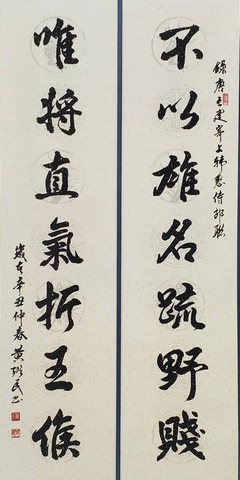 錄唐王建寄上韓愈侍郎聯
不以雄名疏野賤
唯將直氣折王侯
歲在辛丑仲春黃張民書